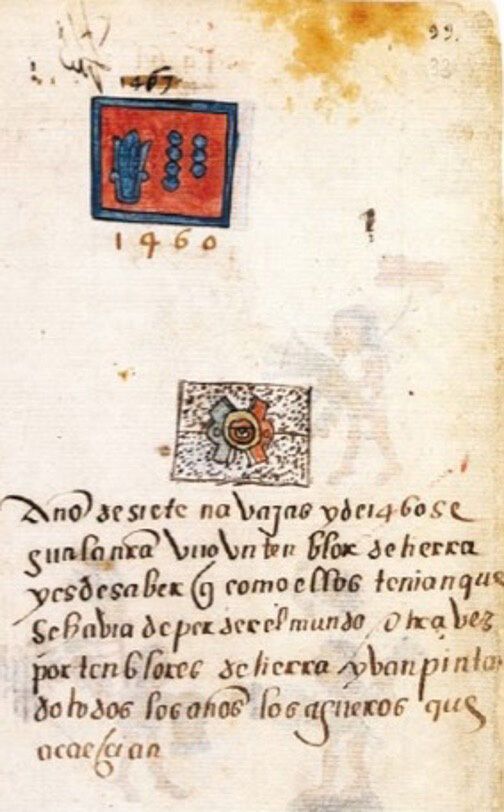 99.
33
1467
1460
Año de siete navajas y de 1460 se
gun la nra vuo vn ten blor de tierra
y es de saber q como ellos tenian que
se havia de perder el mundo otra vez
por tenblores de tierra yvan pinta
do todos los años los agueros que
acaescian